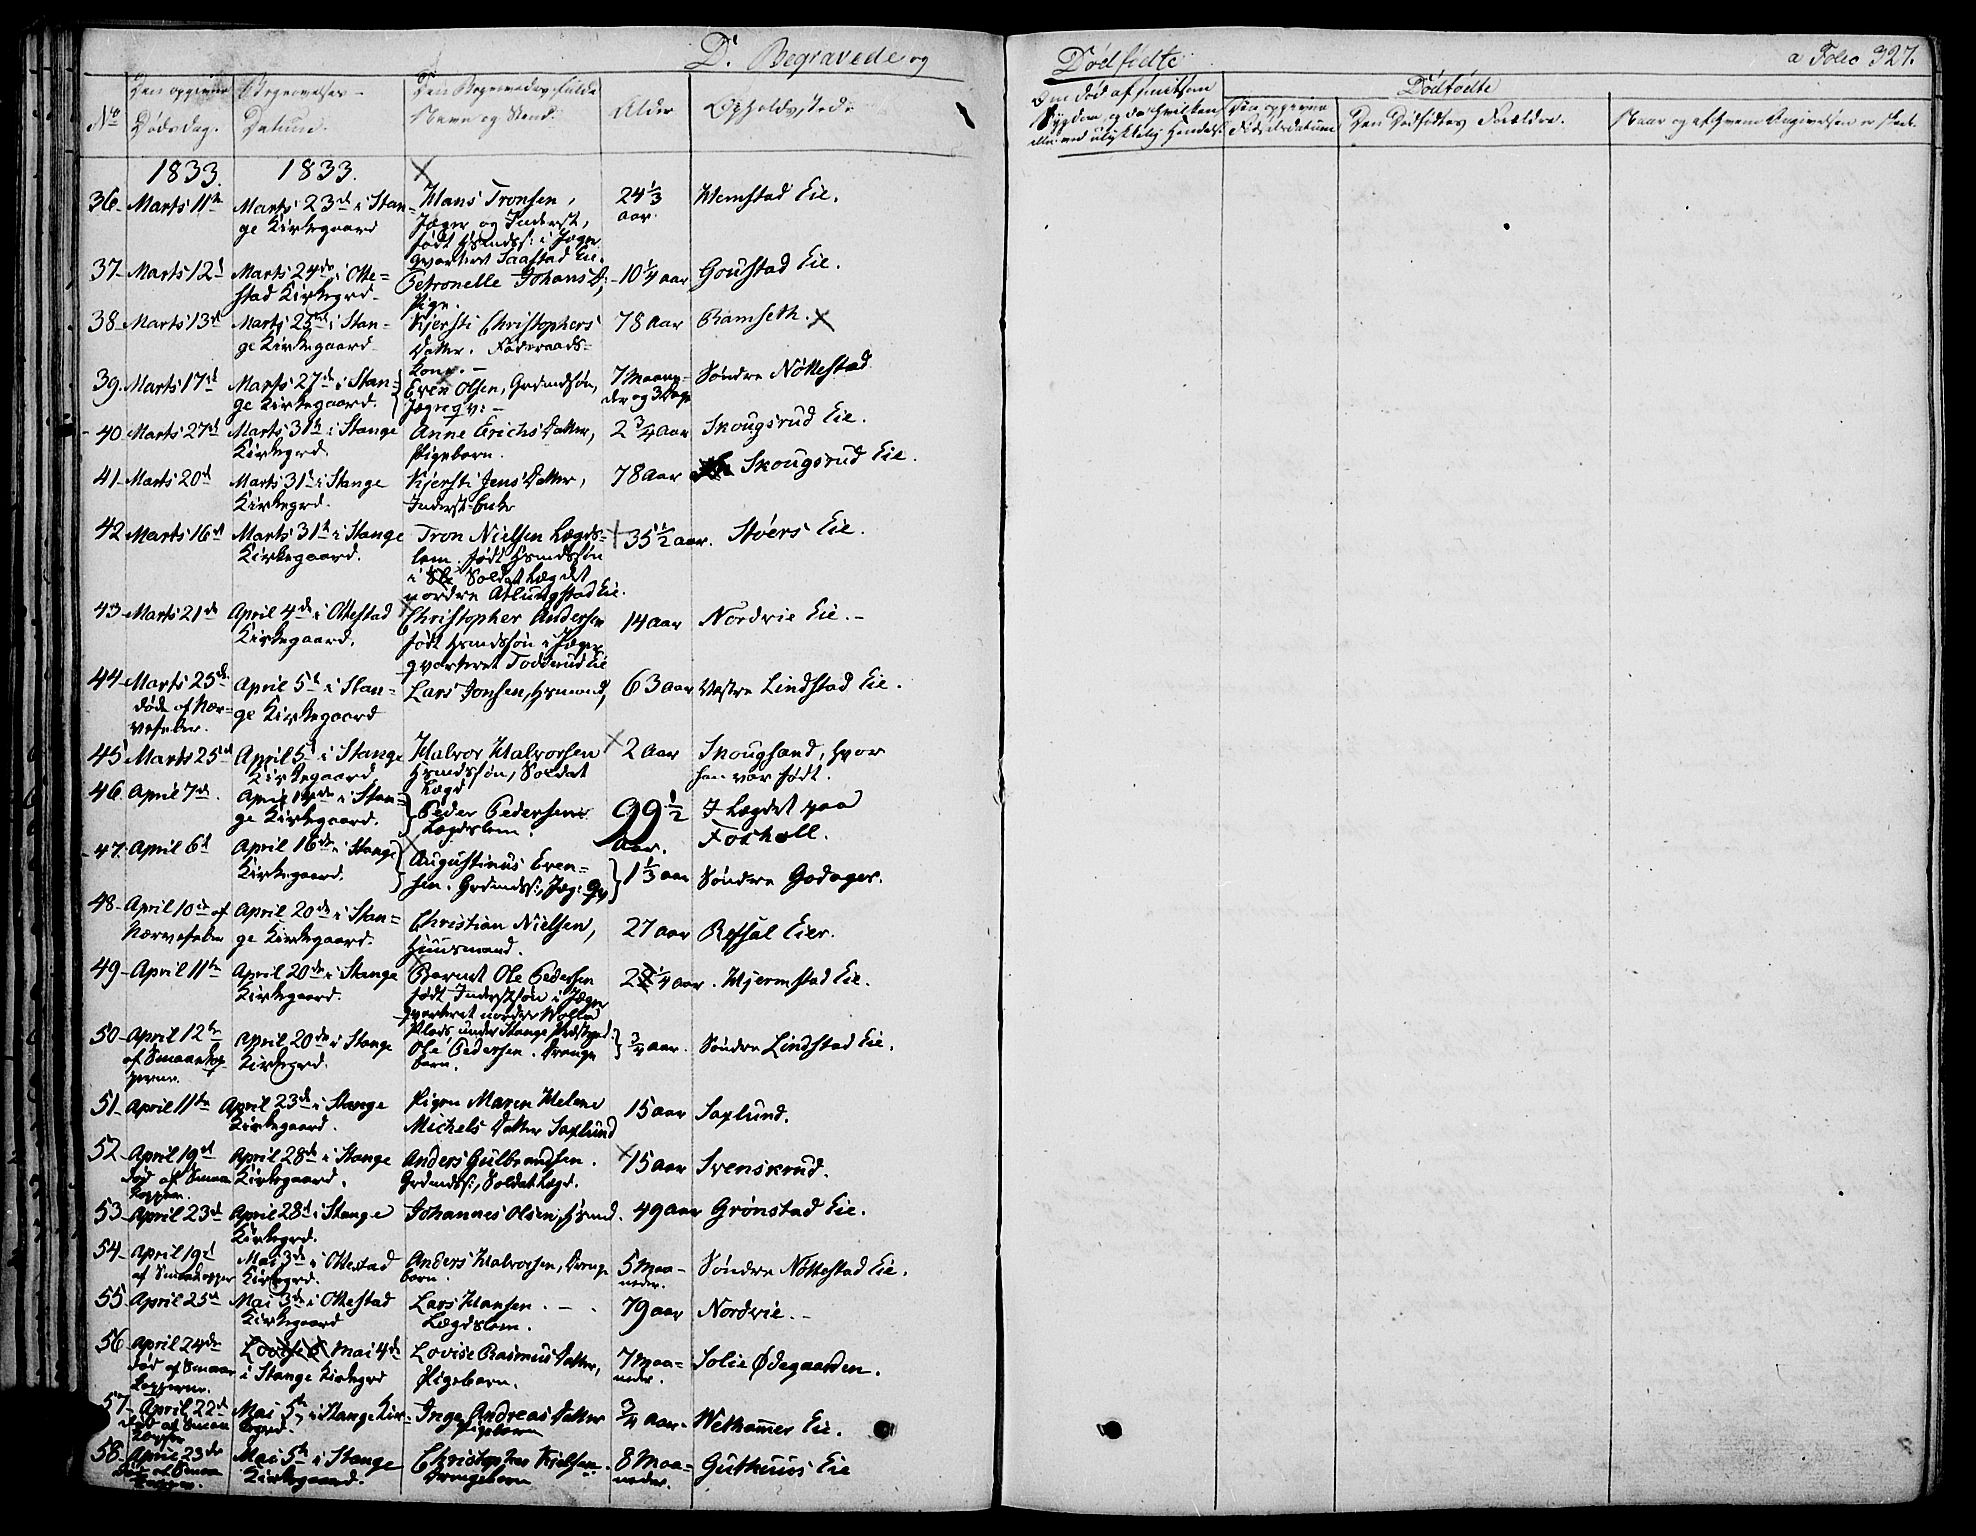 D. Begravede og
Dödfödte
a Folio 327.
No
Den opgivne Dødsdag.
Begravelses-Datum.
Den Begravedes fulde Navn og Stand.
Alder
Opholdssted.
Dödfödte
Den opgivne Fødselsdatum
Den Dødfødtes Forældre.
Naar og af hvem Angivelsen er skeet.
1833. 1833.
36 Marts 11te Marts 23de i Stange Kirkegaard Hans Tronsen, Jæger og Inderst, født Hsmdss: i Jægerqvarteret Saastad Eie. 24 1/3 aar. Hemstad Eie.
37 Marts 12te Marts 24de i Ottestad Kirkegrd. Petronelle Johans D: Pige. 10 1/4 aar Goustad Eie.
38 Marts 13de Marts 25de i Stange Kirkegaard Kjersti Christophers Datter. Føderaadskone. 78 aar Ramseth.
39 Marts 17de Marts 27de i Stange Kirkegaard. Even Olsen, Grdmdsøn, Jægerqv: 7 Maaneder og 3 Dage Søndre Nøttestad
40 Marts 27de Marts 31te i Stange Kirkegrd. Anne Erichs Datter, Pigebarn. 2 3/4 aar Skougsrud Eie.
41 Marts 20de Marts 31te i Stange Kirkegrd. Kjersti Jens Datter, Inderst-Enke 78 aar Skougsrud Eie.
42 Marts 16de Marts 31te i Stange Kirkegaard. Tron Nielsen Lægdslem. født Hsmdssøn i Soldat Lægdet nordre Atlungstad Eie. 35 1/2 aar. Stoers Eie.
43 Marts 21de April 4de i Ottestad Kirkegaard. Christopher Andersen født Hsmdssøn i Jægerqvarteret Todderud Eie 14 aar Nordvie Eie.
44 Marts 25de døde af Nervefeber. April 5te i Stange Kirkegaard Lars Jonsen, Hsmand, 63 aar Vestre Lindstad Eie.
45 Marts 25de April 5te i Stange Kirkegaard Halvor Halvorsen Hsmdssøn, Soldat Lægd 2 aar Skougsand, hvor han var født.
46 April 7de. April 14de i Stange Kirkegaard. Peder Pedersen Lægdslem. 99 1/2 aar. I Lægdet paa Foshall.
47 April 6te April 16de i Stange Kirkegaard. Augustinus Evensen. Grdmdss:, Jæg: Qv 1 1/3 aar Søndre Godager.
48 April 10de af Nervefeber April 20de i Stange Kirkegaard. Christian Nielsen, Huusmand. 27 aar Refsal Eier.
49 April 11te April 20de i Stange Kirkegaard. Bernt Ole Pedersen født Inderstsøn i Jægerqvarteret nordre Plads under Stange Præstegd. 2 1/4 aar. Hjermstad Eie.
50 April 12te af Smaakopperne. April 20de i Stange Kirkegrd. Ole Pedersen. Drengebarn. 3/4 aar. Søndre Lindstad Eie.
51 April 11te April 23de i Stange Kirkegaard. Pigen Maren Helene Michels Datter Saxlund 15 aar Saxlund.
52 April 19de død af Smaakopperne. April 28de i Stange Kirkegaard. Anders Gulbrandsen. Grdmdss:, Soldat Lægd. 15 aar Svenskrud.
53 April 23de April 28de i Stange Kirkegrd. Johannes Olsen, Hsmd. 49 aar Grønstad Eie.
54 April 19de af Smaakopper Mai 3de i Ottestad Kirkegrd. Anders Halvorsen, Drengebarn. 5 Maaneder. Søndre Nøttestad Eie.
55 April 25de Mai 3de i Ottestad Kirkegaard Lars Hansen. Lægdslem. 79 aar Nordvie.
56 April 24de død af Smaakopperne. Mai 4de i Stange Kirkegrd Lovise Rasmus Datter, Pigebarn. 7 Maaneder. Solie Ødegaarden.
57 April 22de død af Smaakopper Mai 5te i Stange Kirkegrd. Inge Andreas Datter Pigebarn 3/4 aar. Wethammer Eie.
58 April 23de Død af Smaakopper. Mai 5te i Stange Kirkegaard. Christopher Nielsen. Drengebarn 8 Maaneder. Guthuus Eie